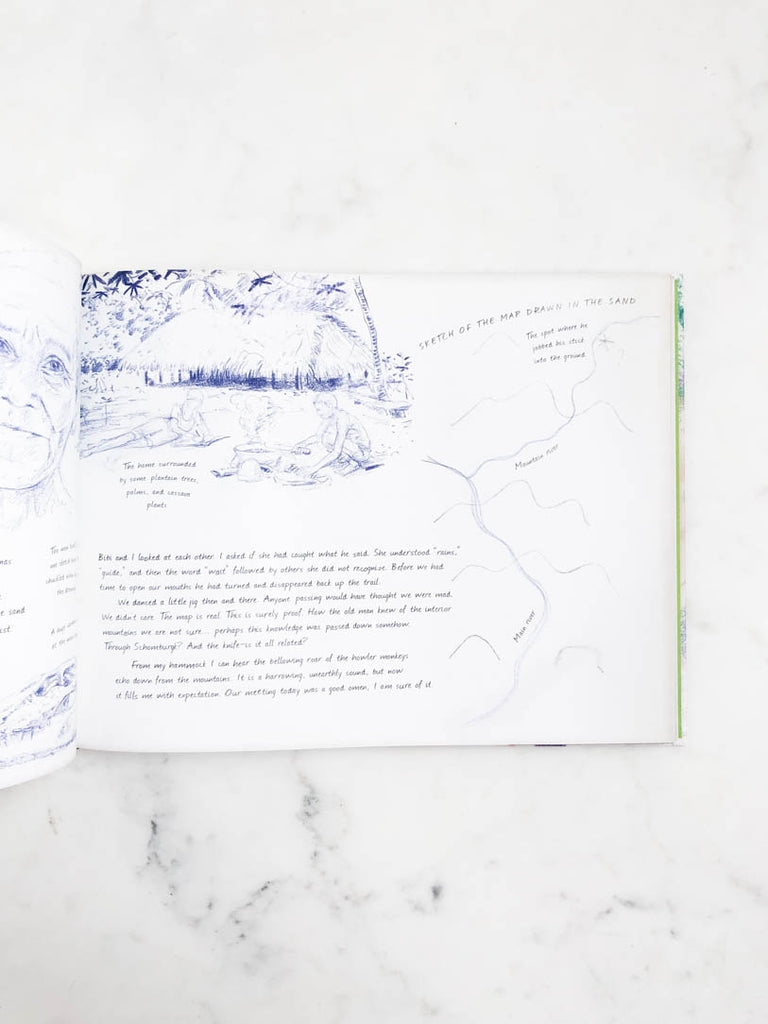 nas
e sand
st.
SKETCH OF THE MAP DRAWN IN THE SAND
The spot where he
jabbed his stick
into the ground.
?
Mountain river
Main river
The home surrounded
by some plantain trees,
palms, and cassava
plants
Biti and I looked at each other. I asked if she had caught what he said. She understood "rains,"
"guide," and then the word "wast" followed by others she did not recognise. Before we had
time to open our mouths he had turned and disappeared back up the trail.
We danced a little jig then and there. Anyone passing would have thought we were mad.
We didn't care. The map is real. This is surely proof. How the old man knew of the interior
mountains we are not sure... perhaps this knowledge was passed down somehow.
Through Schomburgk? And the knife–is it all related?
From my hammock I can hear the bellowing roar of the howler monkeys
echo down from the mountains. It is a harrowing, unearthly sound, but now
it fills me with expectation. Our meeting today was a good omen, I am sure of it.